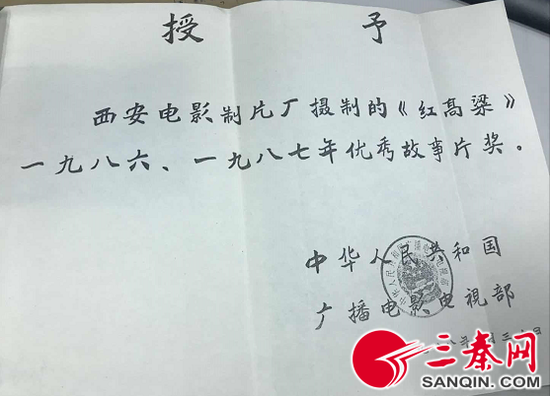 授 予
西安电影制片厂摄制的《红高粱》
一九八六、一九八七年优秀故事片奖。
中华人民共和国
广播电影电视部
三秦网
SANQIN.COM